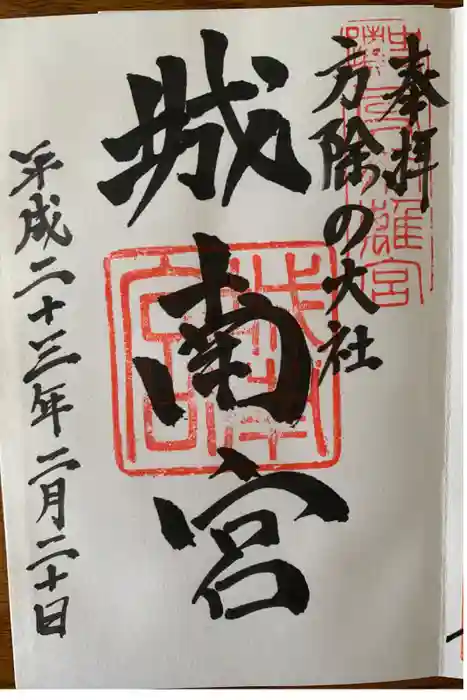 奉拝
方除の大社
城南宮
平成二十三年二月二十日